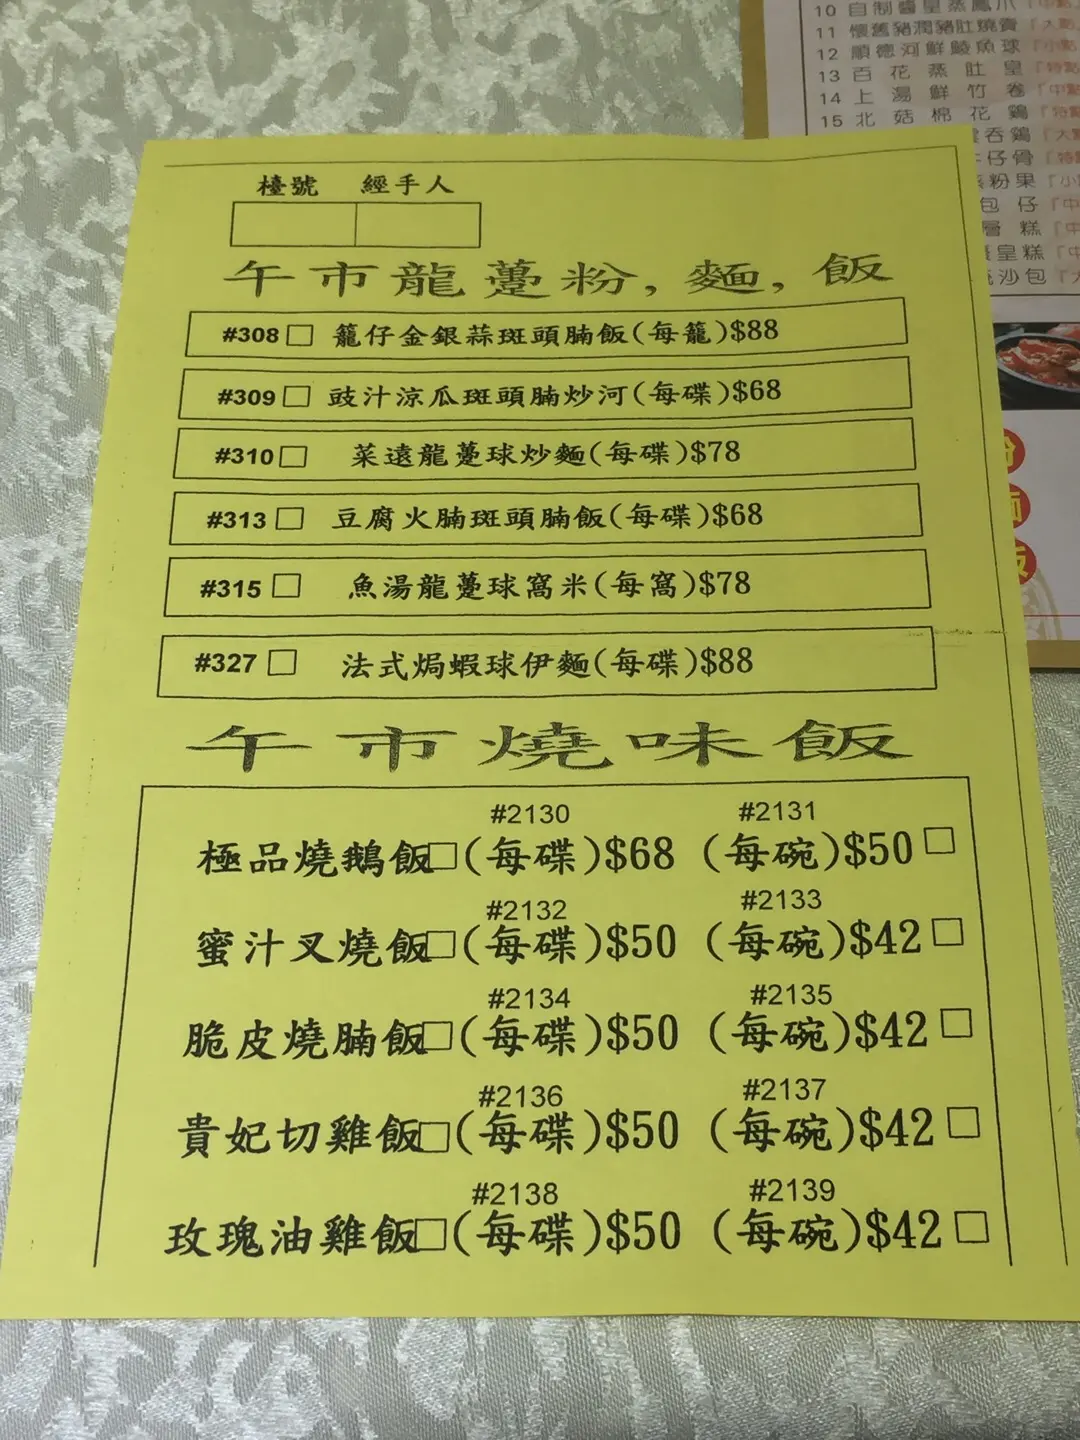 10 自制醬皇蒸鳳爪「中點
11 懷舊豬潤豬肚燒賣「大點
12 順德河鮮鯪魚球「小點
13 百花蒸肚皇「特點
14 上湯鮮竹卷「中點
15 北菇棉花鷄「特點
吞鷄「大點
仔骨「特點
粉果「小
包仔「中
層糕「中
皇糕「中
沙包「大
檯號 經手人
午市龍躉粉,麵,飯
#308 □ 籠仔金銀蒜斑頭腩飯(每籠)$88
#309 □ 豉汁涼瓜斑頭腩炒河(每碟)$68
#310 □ 菜遠龍躉球炒麵(每碟)$78
#313 □ 豆腐火腩斑頭腩飯(每碟)$68
#315 □ 魚湯龍躉球窩米(每窩)$78
#327 □ 法式焗蝦球伊麵(每碟)$88
午市燒味飯
#2130 #2131
極品燒鵝飯□(每碟)$68 (每碗)$50 □
#2132 #2133
蜜汁叉燒飯□(每碟)$50 (每碗)$42 □
#2134 #2135
脆皮燒腩飯□(每碟)$50 (每碗)$42 □
#2136 #2137
貴妃切雞飯□(每碟)$50 (每碗)$42 □
#2138 #2139
玫瑰油雞飯□(每碟)$50 (每碗)$42 □